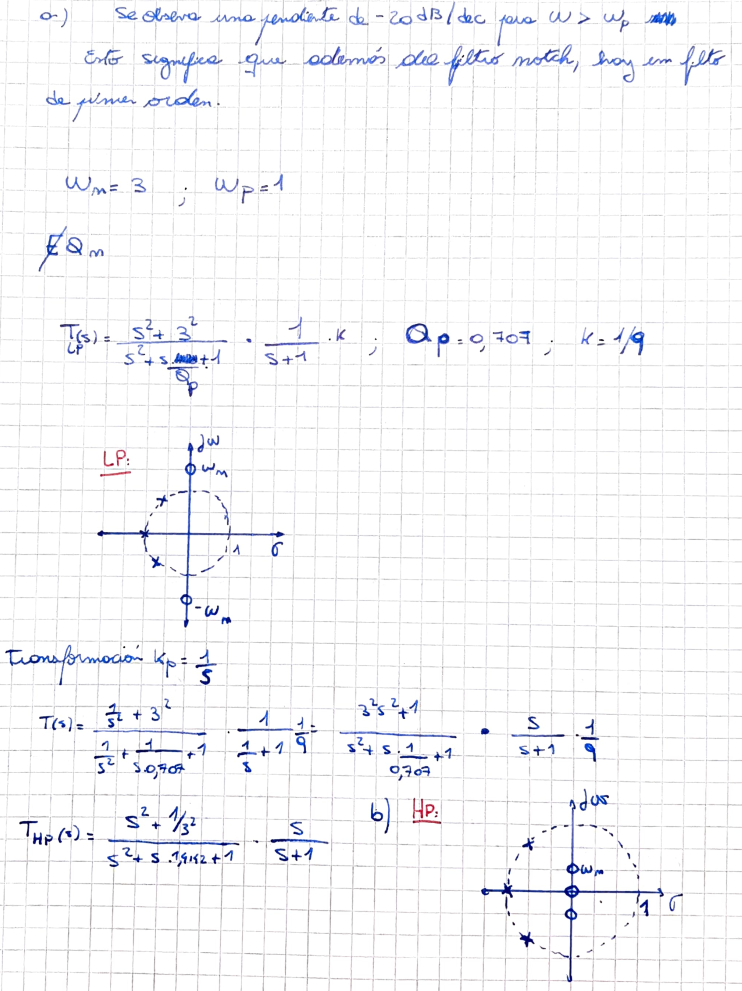 a) Se observa una pendiente de -20 dB/dec para ω > ωp
Esto significa que además del filtro notch, hay un filto
de primer orden.
ωn = 3 ; ωp = 1
∄ Qn
T(s)LP = (s² + 3²)/(s² + s·1/Qp + 1) · 1/(s+1) · k ; Qp = 0,707 ; k = 1/9
LP:
jω
ωn
1 σ
-ωn
Transformación Kp = 1/s
T(s) = (1/s² + 3²)/(1/s² + 1/(s·0,707) + 1) · 1/(1/s + 1) · 1/9 = (3²s² + 1)/(s² + s·1/0,707 + 1) · s/(s+1) · 1/9
THP(s) = (s² + 1/3²)/(s² + s·1,4142 + 1) · s/(s+1)
b) HP:
jω
ωn
1 σ